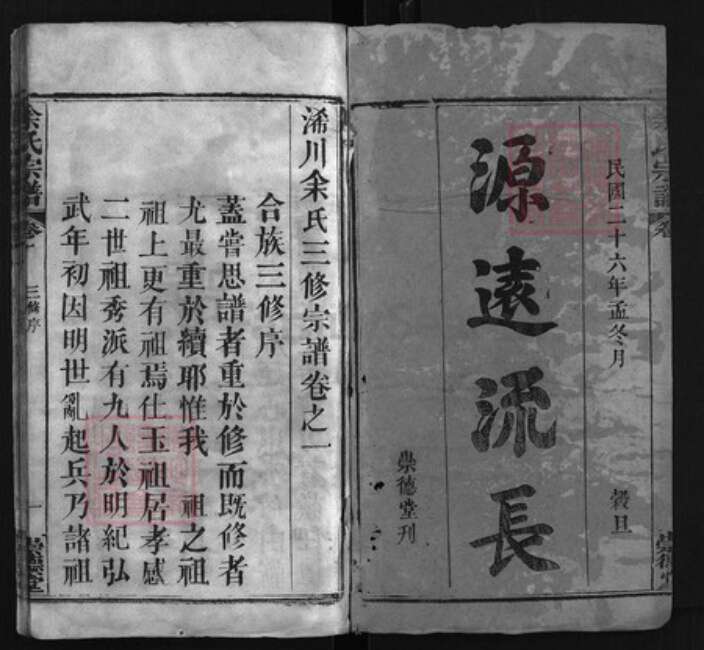 民國二十六年孟冬月　穀旦
源遠流長
崇德堂刊
浠川余氏三修宗譜卷之一
合族三修序
蓋嘗思譜者重於修而既修者
尤最重於續耶惟我　祖之祖
祖上更有祖焉仕玉祖居孝感
二世祖秀派有九人於明紀弘
武年初因明世亂起兵乃諸祖
余氏宗譜
卷一
三修序
一
崇德堂